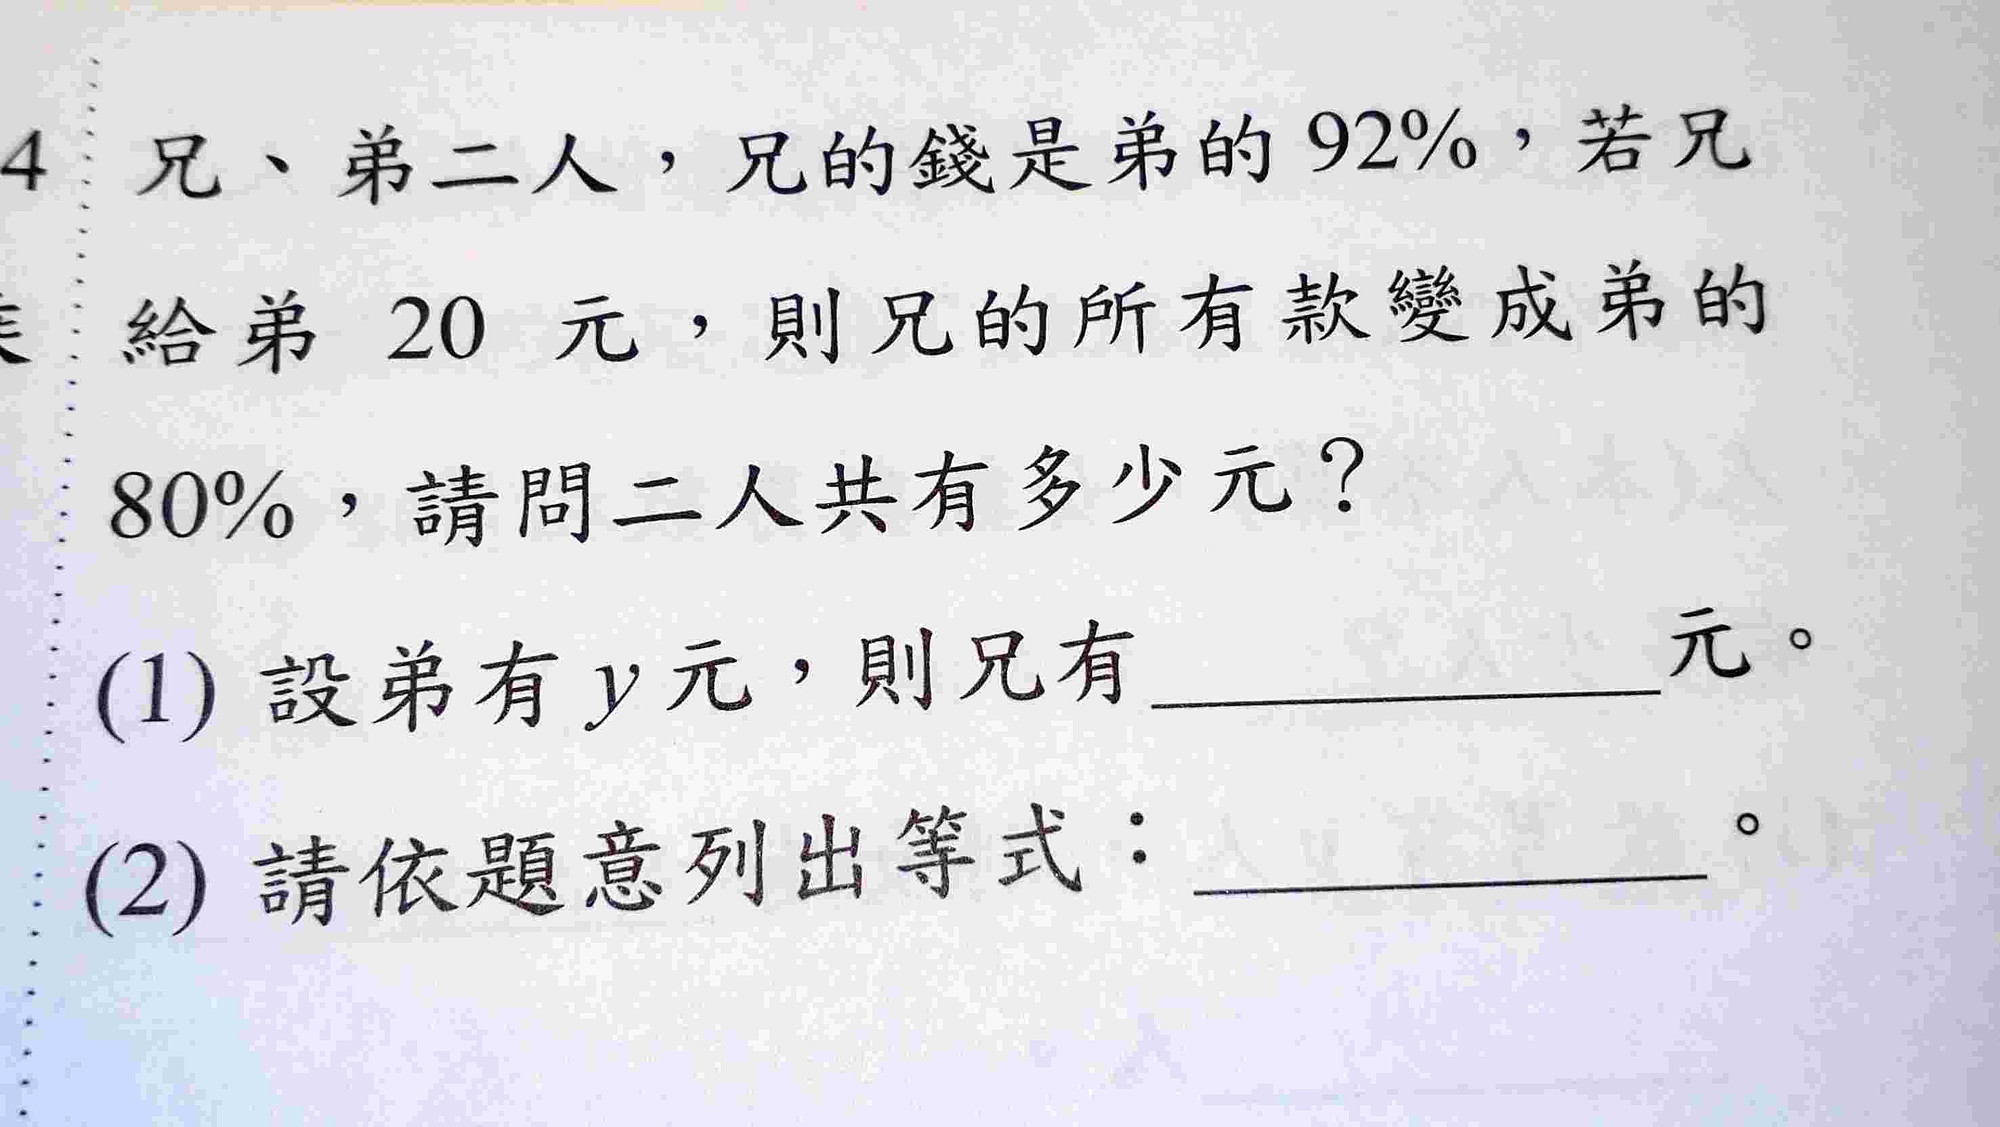 4 兄、弟二人，兄的錢是弟的 92%，若兄
給弟 20 元，則兄的所有款變成弟的
80%，請問二人共有多少元？
(1) 設弟有 y 元，則兄有__________元。
(2) 請依題意列出等式：__________。